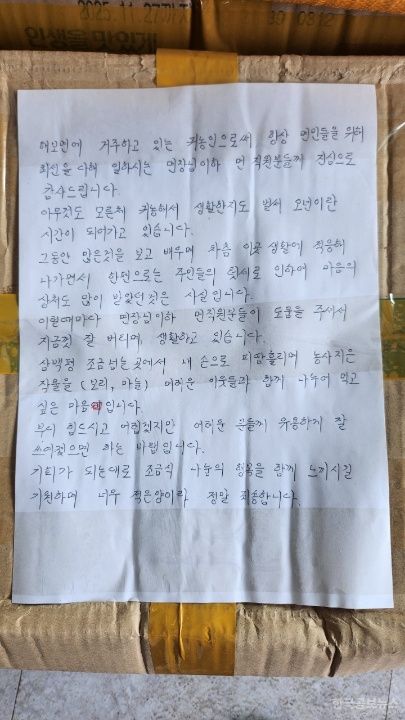 2025.11.27까지
인생을 맛있게
해보면에 거주하고 있는 귀농인으로써 항상 면민들을 위해
최선을 다해 일하시는 면장님이하 면 직원분들께 진심으로
감사드립니다.
아무것도 모른체 귀농해서 생활한지도 벌써 오년이란
시간이 되어가고 있습니다.
그동안 많은것을 보고 배우며 차츰 이곳 생활에 적응해
나가면서 한편으로는 주민들의 텃세로 인하여 마음의
상처도 많이 받았던것은 사실입니다.
이럴때마다 면장님이하 면직원분들이 도움을 주셔서
지금껏 잘 버티며, 생활하고 있습니다.
삼백평 조금넘는곳에서 내 손으로 피땀흘리며 농사지은
작물을 (보리, 마늘) 어려운 이웃들과 함께 나누어 먹고
싶은 마음입니다.
부디 힘드시고 어렵겠지만 어려운 분들께 유용하게 잘
쓰여졌으면 하는 바램입니다.
기회가 되는대로 조금씩 나눔의 행복을 함께 느끼시길
기원하며 너무 적은양이라 정말 죄송합니다.
한국공보뉴스